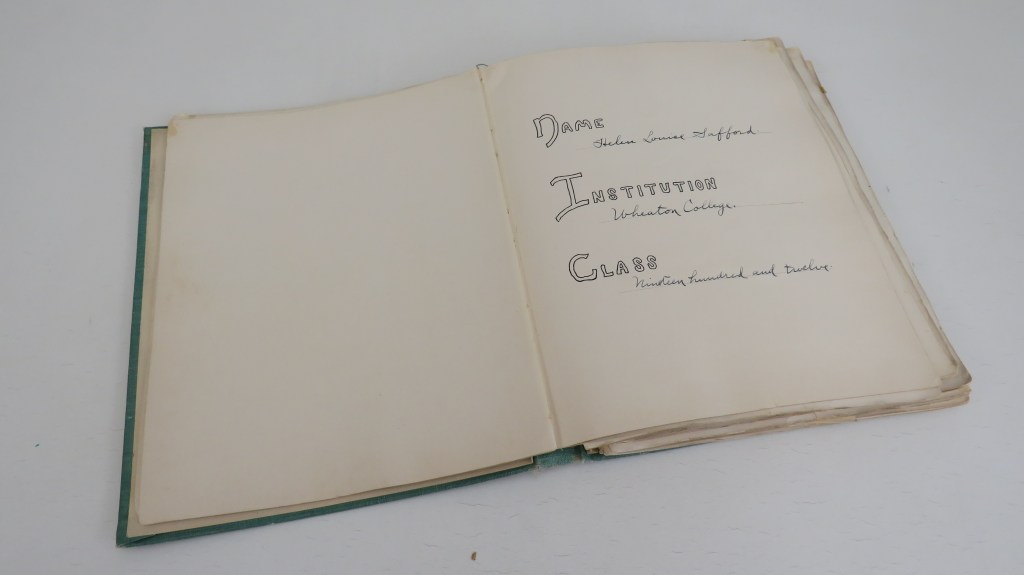 NAME
Helen Louise Safford
INSTITUTION
Wheaton College.
CLASS
Nineteen hundred and twelve.